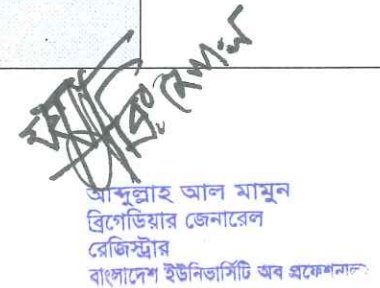 আব্দুল্লাহ আল মামুন
ব্রিগেডিয়ার জেনারেল
রেজিস্ট্রার
বাংলাদেশ ইউনিভার্সিটি অব প্রফেশনালস